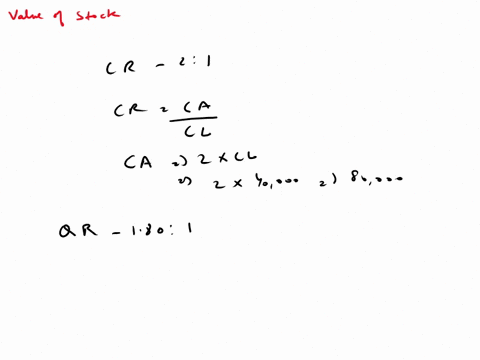 Value of Stock
CR - 2:1
CR = CA
CL
CA => 2 x CL
=> 2 x 40,000 => 80,000
QR - 1.80 : 1